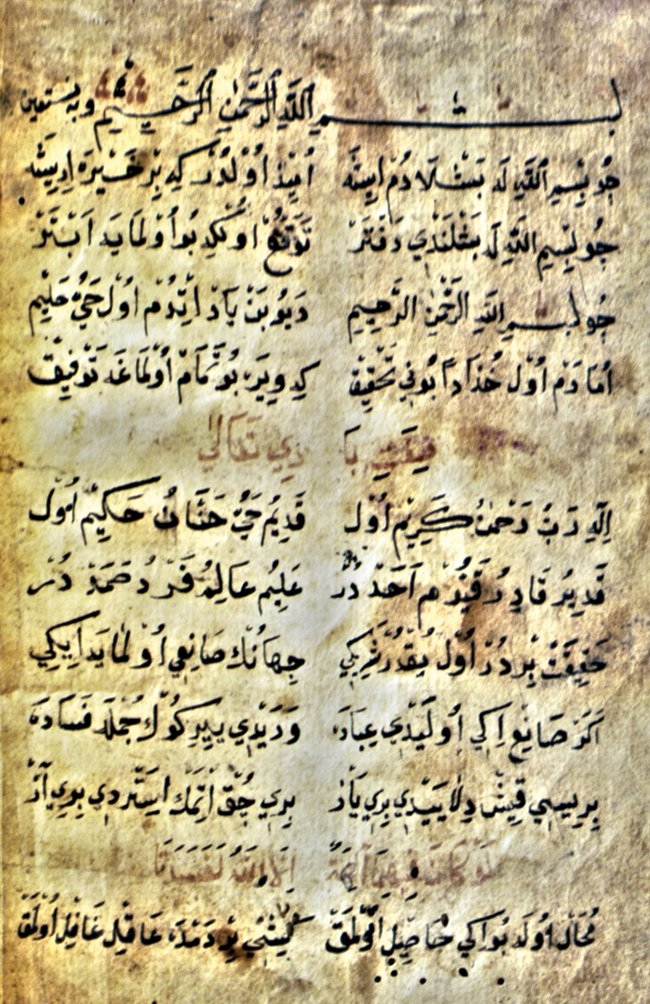 بسم الله الرحمن الرحيم وبه نستعين
چُو بِسْمِ اللّٰهِ لَه بَشْلَادُمْ اِيشَه اُمِيذْ اُولْدُرْ كِه بِرْ خَيْرَه اِرِيشَه
چُو بِسْمِ اللّٰهِ لَه بَشْلَنْدِي دَفْتَرْ تَوَقُّعْ اُولْكِه بُو اُولْمَايَه اَبْتَرْ
چُو بِسْمِ اللّٰهِ الرَّحْمٰنِ الرَّحِيمِ وَبُو بَنْ يَادْ اِتْدُمْ اُولْ حَيُّ حَلِيمِ
اُمَادَمْ اُولْ خُذَادَا بُونِي تَحْقِيقْ كِه وِيرَه بُو تَمَامْ اُولْمَاغَه تَوْفِيقْ
تعالى
اِلٰهِ رَبُّ رَحْمٰنُ كَرِيمْ اُولْ قَدِيمُ حَيُّ حَنَّانُ حَكِيمْ اُولْ
قَدِيرُ قَادِرُ قَيُّومْ اَحَدْ دُرْ عَلِيمُ عَالِمُ فَرْدُ صَمَدْ دُرْ
حَقِيقَتْ بِرْدُرْ اُولْ يُقْدُرْ شَرِيكِي جِهَانُكْ صَانِعِي اُولْمَايَه اِيكِي
اَكَرْ صَانِعْ اِكِي اُولَيْدِي عِبَادَه وَرَيْدِي يِيرِ كُوكْ جُمْلَه فَسَادَه
بِرِيسِي قِيشْ دِلَايَيْدِي بِرِي يَازْ بِرِي چُقْ اِتْمَكْ اِسْتَرْدِي بِرِي آزْ
لَوْ كَانَ فِيهِمَا آلِهَةٌ اِلَّا اللّٰهُ لَفَسَدَتَا
مُحَالْ اُولَه بُو اِكِي حَاصِلْ اُولْمَقْ كِيشِي بِرْ دَمْدَه عَاقِلْ غَافِلْ اُولْمَقْ